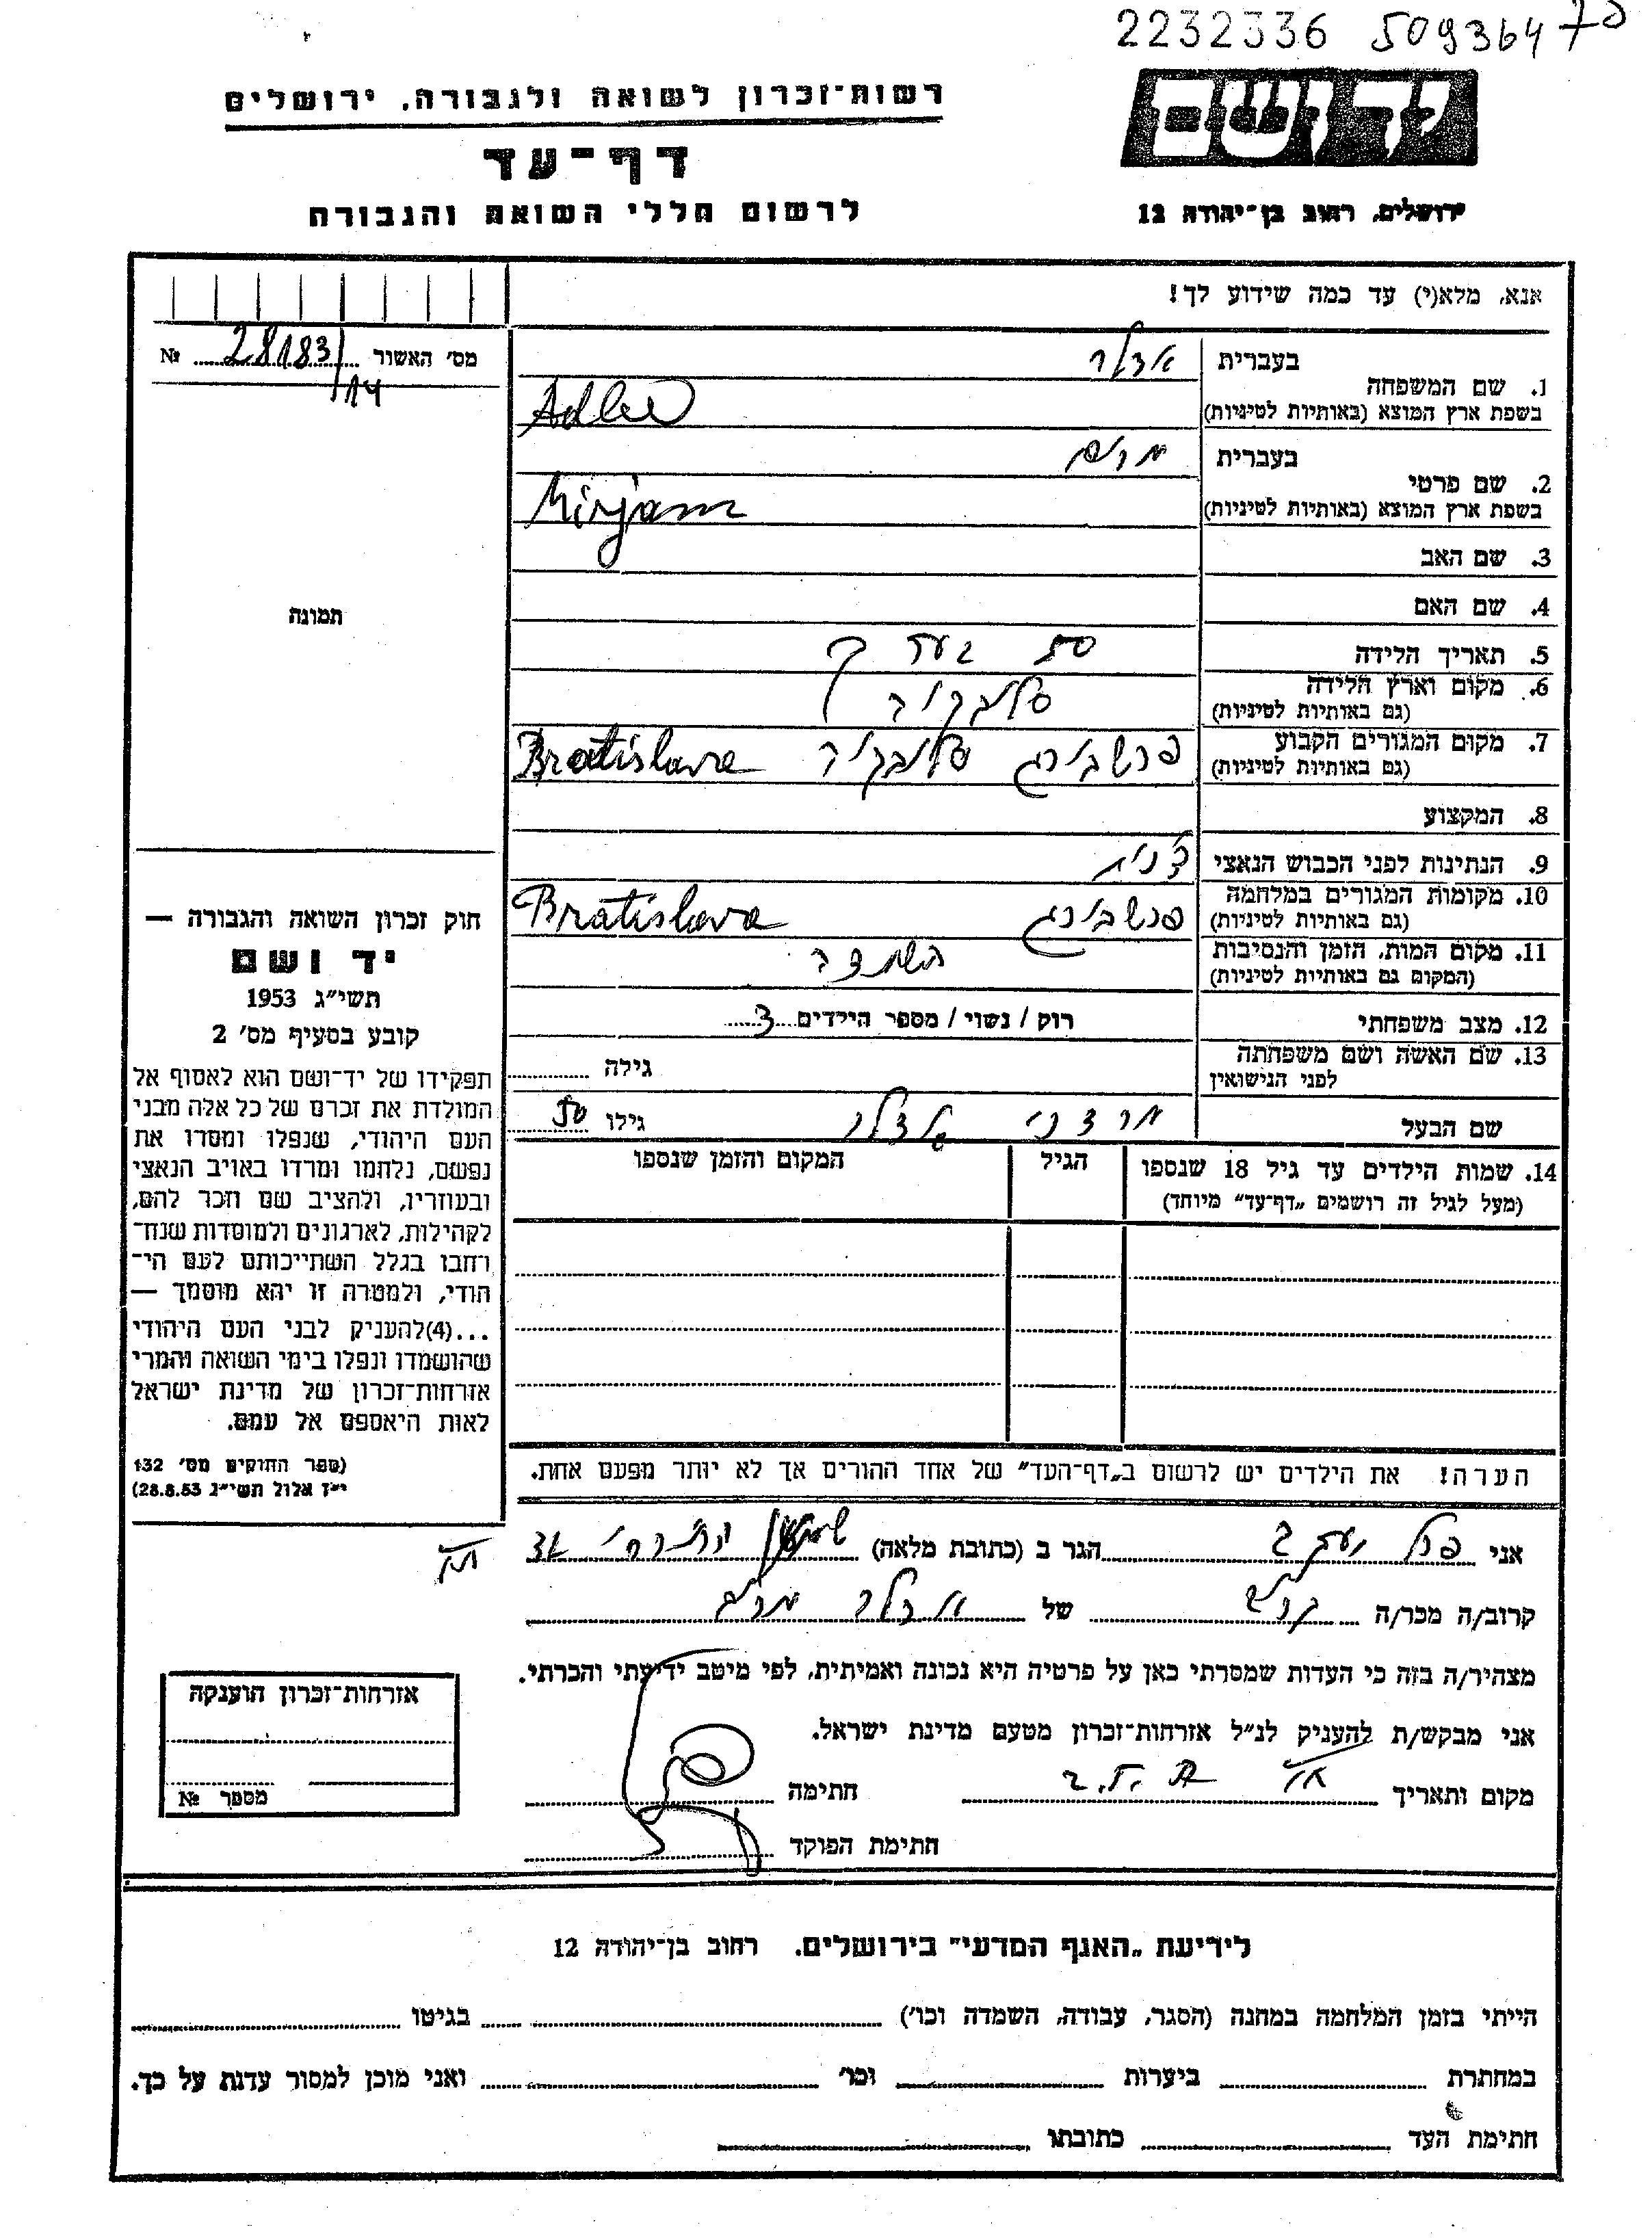 2232336 5093647
יד ושם
רשות־זכרון לשואה ולגבורה. ירושלים
דף־עד
לרשום חללי השואה והגבורה
ירושלים, רחוב בן־יהודה 12
אנא, מלא(י) עד כמה שידוע לך!
מס׳ האשור 28183/14 №
בעברית אדלר
1. שם המשפחה
בשפת ארץ המוצא (באותיות לטיניות) Adler
בעברית מרים
2. שם פרטי
בשפת ארץ המוצא (באותיות לטיניות) Mirjam
3. שם האב
4. שם האם
תמונה
5. תאריך הלידה
6. מקום וארץ הלידה
(גם באותיות לטיניות) סלובקיה
7. מקום המגורים הקבוע
(גם באותיות לטיניות) פרשבורג סלובקיה Bratislava
8. המקצוע
9. הנתינות לפני הכבוש הנאצי
10. מקומות המגורים במלחמה
(גם באותיות לטיניות) פרשבורג Bratislava
11. מקום המות, הזמן והנסיבות
(המקום גם באותיות לטיניות) השמדה
12. מצב משפחתי רוק / נשוי / מספר הילדים 3
13. שם האשה ושם משפחתה
לפני הנישואין גילה
שם הבעל אדלר גילו 50
14. שמות הילדים עד גיל 18 שנספו הגיל המקום והזמן שנספו
(מעל לגיל זה רושמים „דף־עד״ מיוחד)
הערה! את הילדים יש לרשום ב„דף־העד״ של אחד ההורים אך לא יותר מפעם אחת.
חוק זכרון השואה והגבורה —
יד ושם
תשי״ג 1953
קובע בסעיף מס׳ 2
תפקידו של יד־ושם הוא לאסוף אל
המולדת את זכרם של כל אלה מבני
העם היהודי, שנפלו ומסרו את
נפשם, נלחמו ומרדו באויב הנאצי
ובעוזריו, ולהציב שם וזכר להם,
לקהילות, לארגונים ולמוסדות שנח־
רחבו בגלל השתייכותם לעם הי־
הודי, ולמטרה זו יהא מוסמך —
...(4)להעניק לבני העם היהודי
שהושמדו ונפלו בימי השואה והמרי
אזרחות־זכרון של מדינת ישראל
לאות היאספם אל עמם.
(ספר החוקים מס׳ 132
י״ז אלול תשי״ג 28.8.53)
אני יעקב הגר ב (כתובת מלאה)
קרוב/ה מכר/ה קרוב של אדלר מרים
מצהיר/ה בזה כי העדות שמסרתי כאן על פרטיה היא נכונה ואמיתית, לפי מיטב ידיעתי והכרתי.
אני מבקש/ת להעניק לנ״ל אזרחות־זכרון מטעם מדינת ישראל.
מקום ותאריך חתימה
חתימת הפוקד
אזרחות־זכרון הוענקה
מספר №
לידיעת „האגף המדעי״ בירושלים. רחוב בן־יהודה 12
הייתי בזמן המלחמה במחנה (הסגר, עבודה, השמדה וכו׳) בגיטו
במחתרת ביערות וכו׳ ואני מוכן למסור עדות על כך.
חתימת העד כתובתו